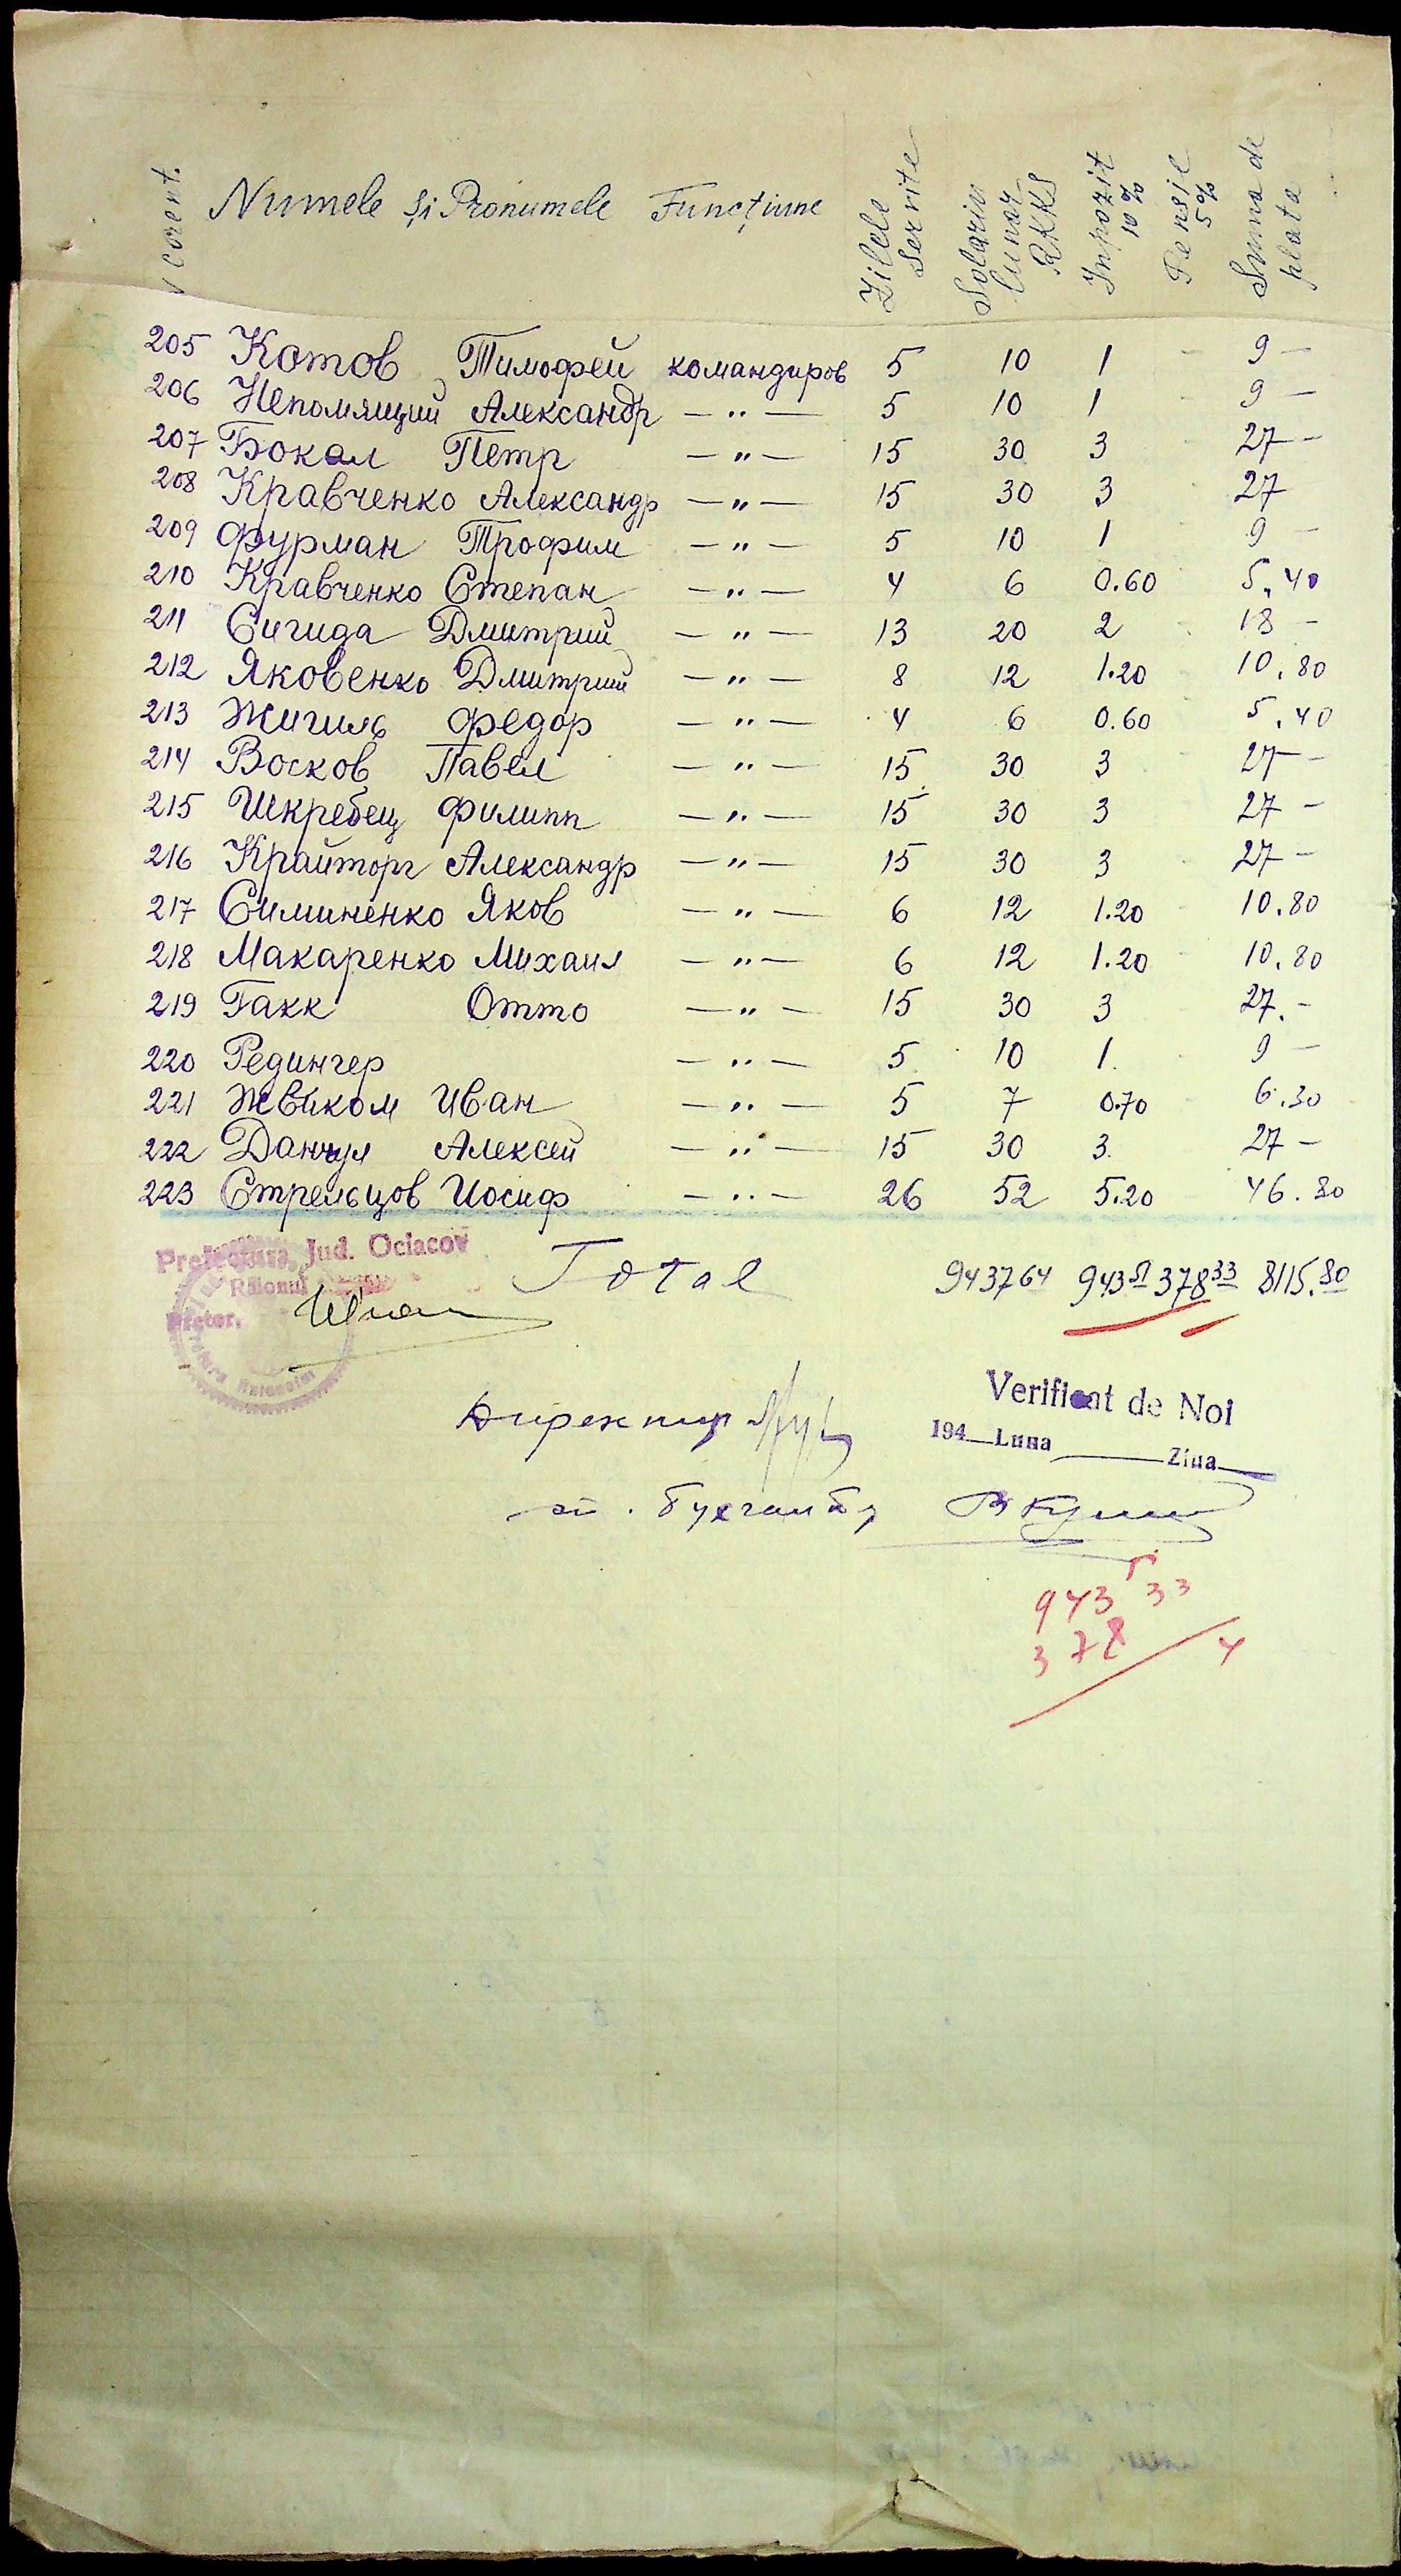 corent. Numele și Pronumele Funcțiune Zilele Servite Solariu lunar RKKS Inpozit 10% Pensie 5% Suma de plata
205 Котов Тимофей командиров 5 10 1 - 9 -
206 Непомящий Александр — " — 5 10 1 - 9 -
207 Бокал Петр — " — 15 30 3 - 27 -
208 Кравченко Александр — " — 15 30 3 - 27
209 Фурман Трофим — " — 5 10 1 - 9 -
210 Кравченко Степан — " — 4 6 0.60 - 5.40
211 Сигида Дмитрий — " — 13 20 2 - 18 -
212 Яковенко Дмитрий — " — 8 12 1.20 10.80
213 Жигиль Федор — " — 4 6 0.60 - 5.40
214 Восков Павел — " — 15 30 3 - 27 -
215 Шкребец Филипп — " — 15 30 3 - 27 -
216 Крайторг Александр — " — 15 30 3 - 27 -
217 Симиненко Яков — " — 6 12 1.20 - 10.80
218 Макаренко Михаил — " — 6 12 1.20 - 10.80
219 Гакк Отто — " — 15 30 3 - 27.-
220 Редингер — " — 5 10 1. - 9 -
221 Жвиком Иван — " — 5 7 0.70 - 6.30
222 Данчул Алексей — " — 15 30 3. 27 -
223 Стрельцов Иосиф — " — 26 52 5.20 46.80
Prefectura Jud. Ociacov
Raionul
Pretor,
Total 943764 943 51 378 33 8115.80
Директор
Verificat de Noi
194 Luna Ziua
бухгалтер
943 33
378 4